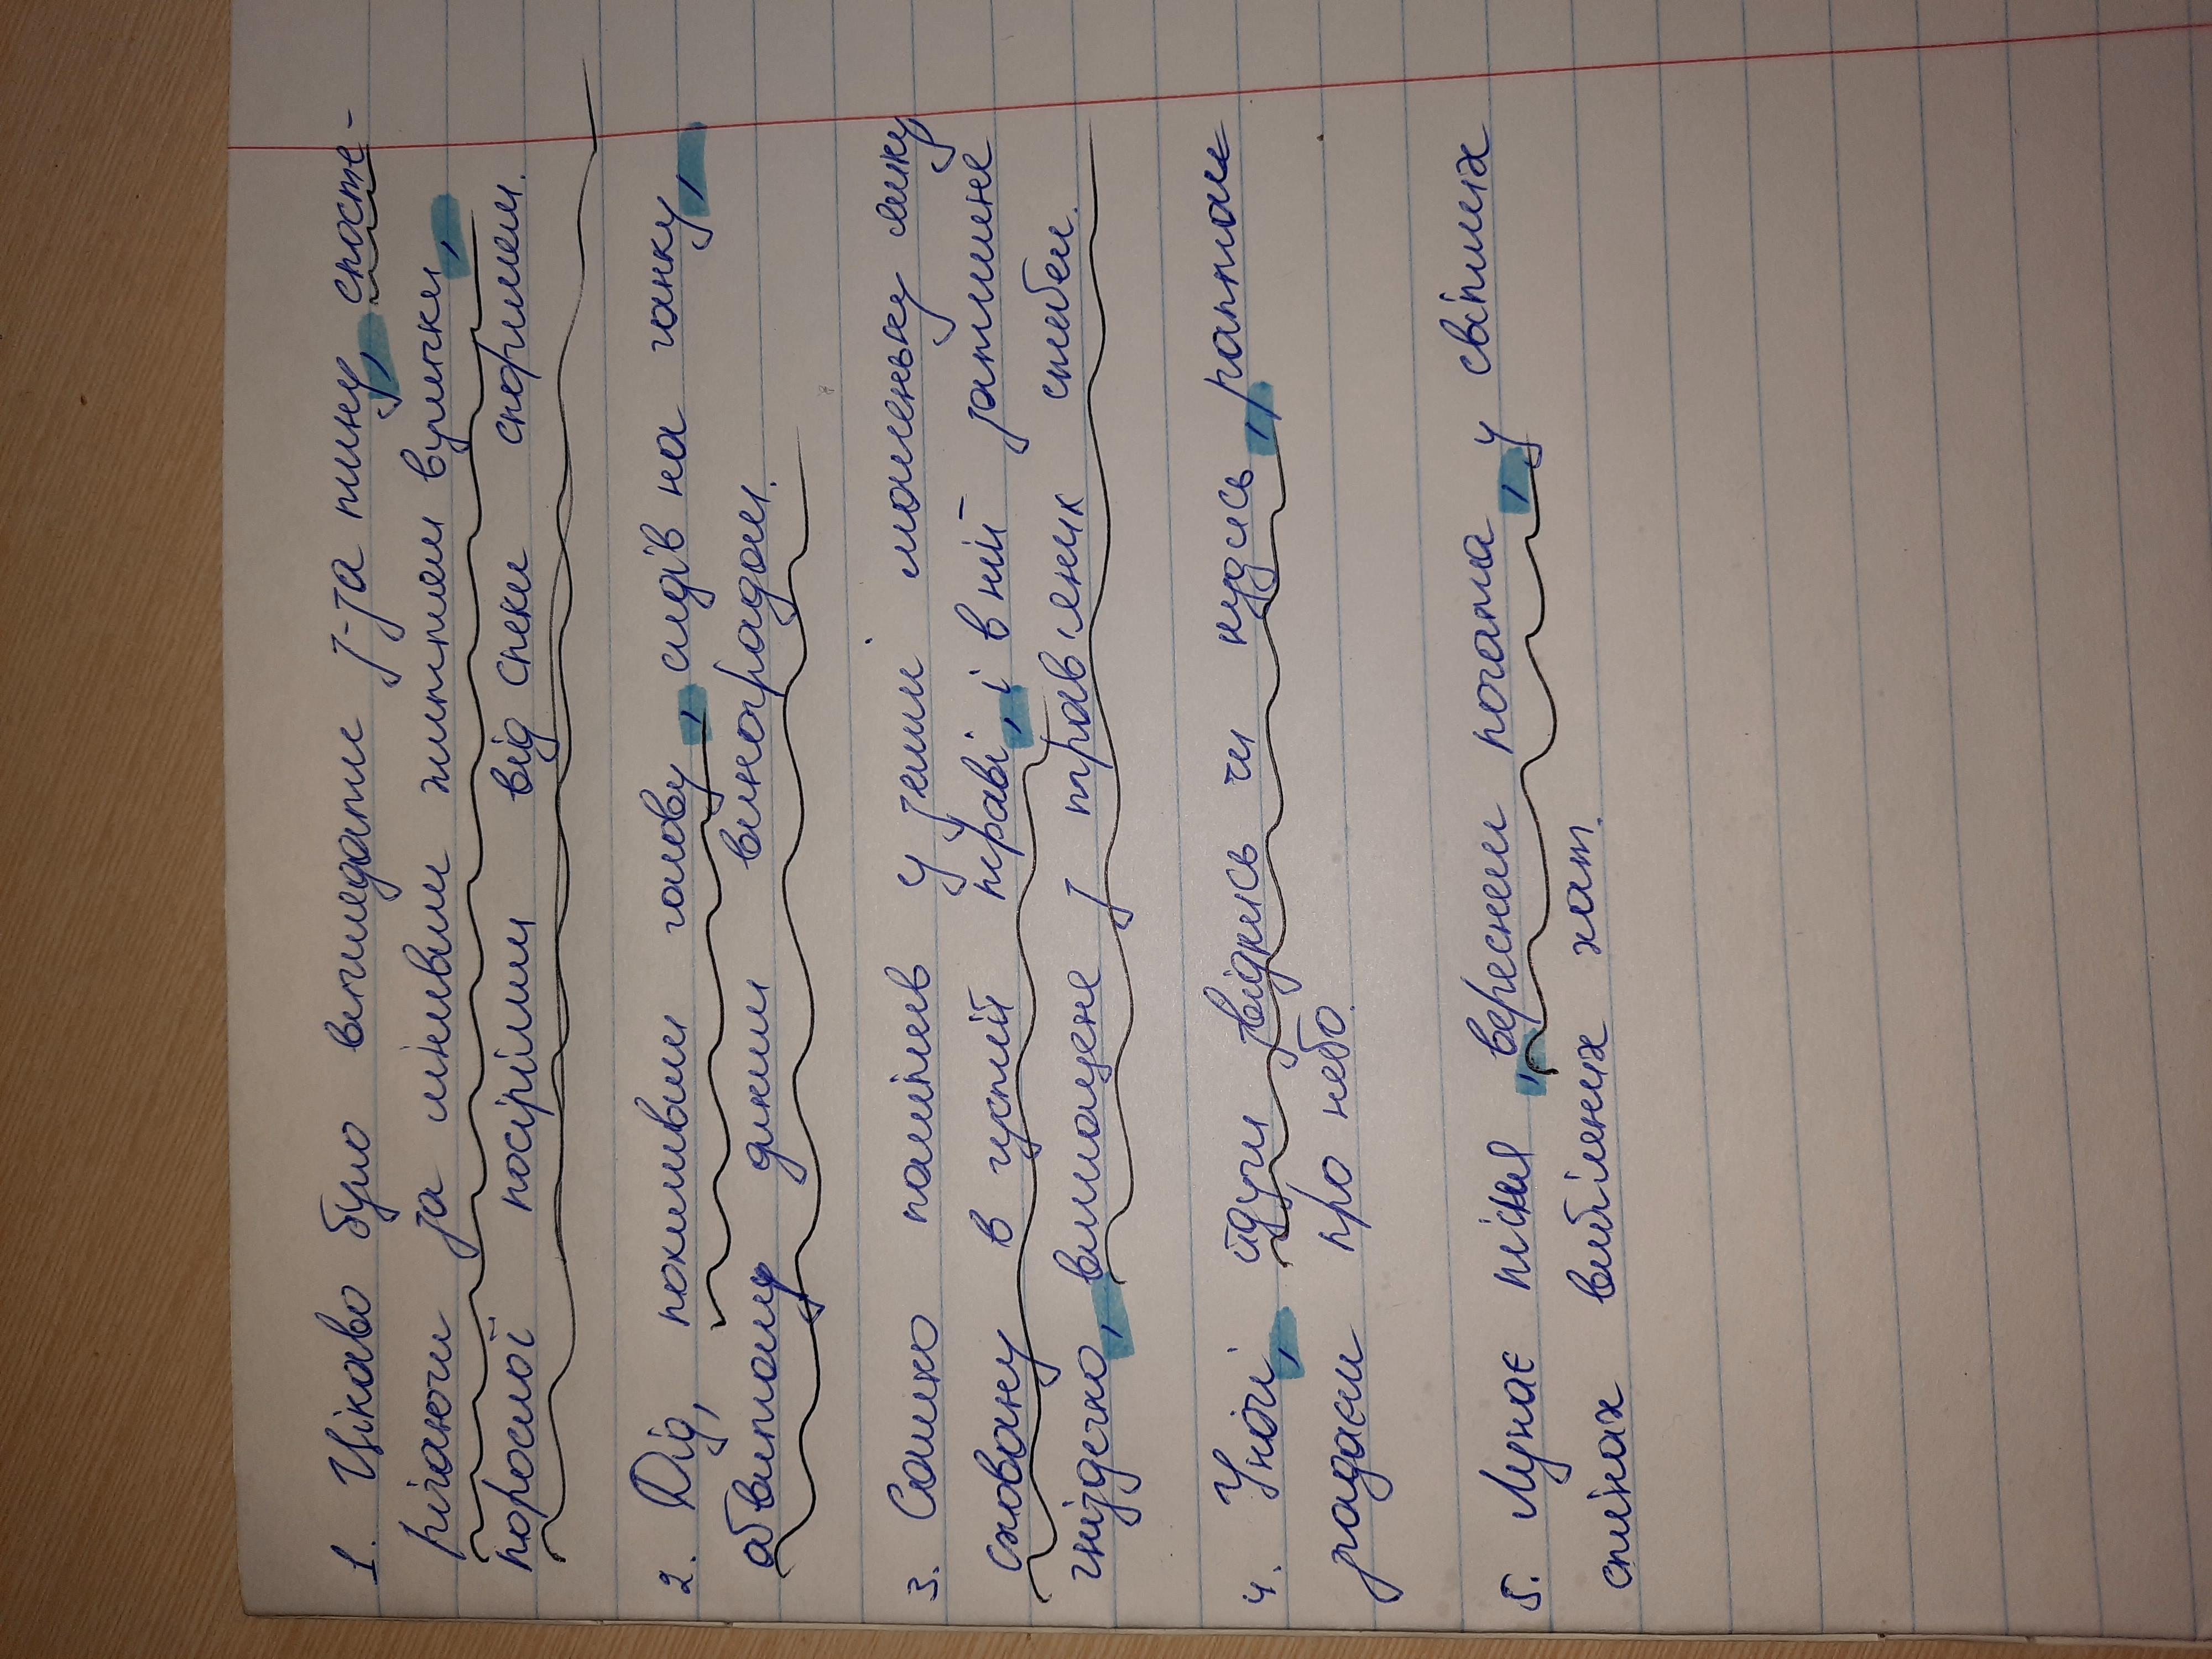 1. Цікаво було виглядати з-за тину, спосте-
рігаючи за лінивим життям вулички,
порослої посірілим від спеки споришем.
2. Дід, похиливши голову, сидів на ганку,
обвитому диким виноградом.
3. Сашко помітив у землі маленьку ямку
сховану в густій траві, і в ній затишне
гніздечко, вимощене з трав'яних стебел.
4. Уночі, йдучи звідкись чи кудись, раптом
згадаєш про небо.
5. Лунає пісня, вереснем почата, у світлих
стінах вибілених хат.